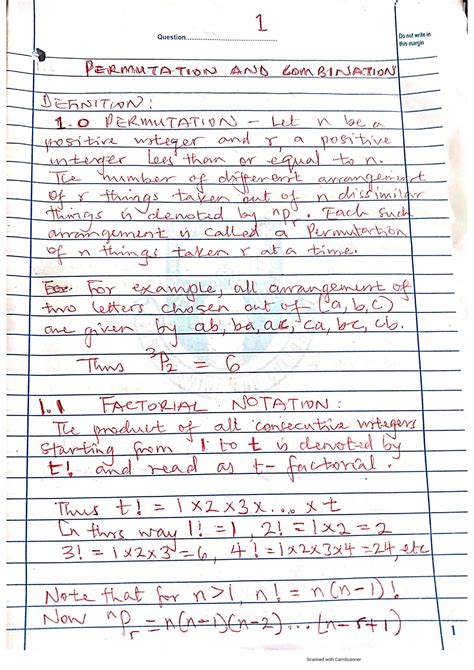 1
Question
Do not write in
this margin
PERMUTATION AND COMBINATION
DEFINITION:
1.0 PERMUTATION - Let n be a
positive integer and r, a positive
interger less than or equal to n.
The number of different arrangement
of r things taken out of n dissimilar
things is denoted by ⁿPᵣ. Each such
arrangement is called a Permutation
of n things taken r at a time.
For For example, all arrangement of
two letters chosen out of (a, b, c)
are given by ab, ba, ac, ca, bc, cb.
Thus ³P₂ = 6
1.1 FACTORIAL NOTATION:
The product of all consecutive integers
starting from 1 to t is denoted by
t! and read as t- factorial.
Thus t! = 1x2x3x.... x t
In this way 1! = 1, 2! = 1x2 = 2
3! = 1x2x3 = 6, 4! = 1x2x3x4 = 24, etc
Note that for n>1, n! = n(n-1)!
Now ⁿPᵣ = n(n-1)(n-2)...(n-r+1)
1
Scanned with CamScanner